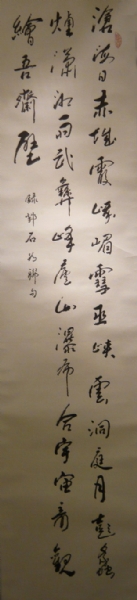 滄海日赤城霞峨嵋雪巫峽雲洞庭月彭蠡
煙瀟湘雨武彝峰廬山瀑布合宇宙奇觀
繪吾齋壁
錄鄧石如聯句